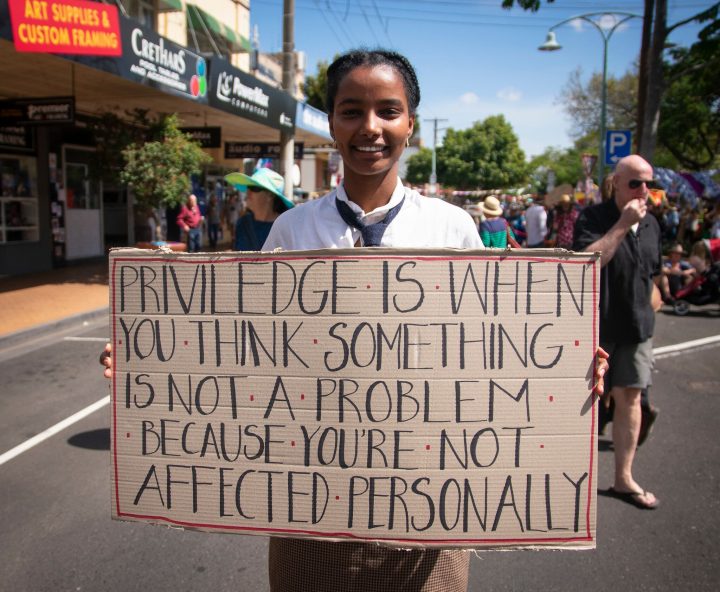 ART SUPPLIES &
CUSTOM FRAMING
CRETHARS
POWERMAX
COMPUTERS
P
PRIVILEDGE·IS·WHEN
·YOU·THINK·SOMETHING·
IS·NOT·A·PROBLEM·
·BECAUSE·YOU'RE·NOT·
AFFECTED·PERSONALLY